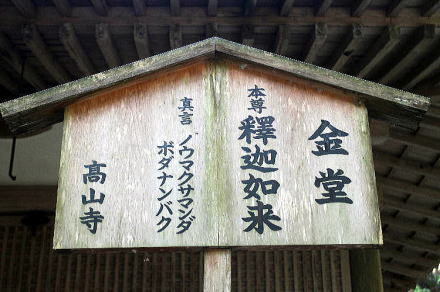 金堂
本尊 釋迦如来
真言 ノウマクサマンダ
ボダナンバク
高山寺